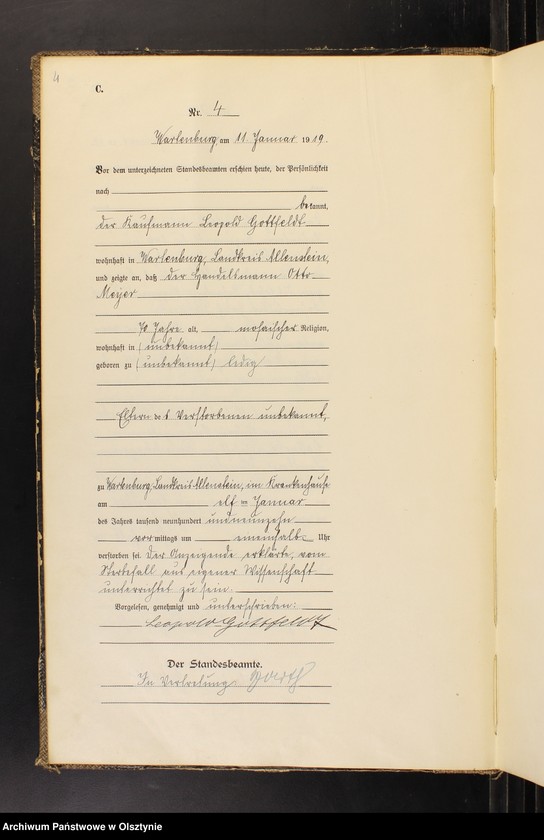 4
C.
Nr. 4
Wartenburg am 11. Januar 1919.
Vor dem unterzeichneten Standesbeamten erschien heute, der Persönlichkeit
nach
bekannt,
der Kaufmann Leopold Gottfeldt
wohnhaft in Wartenburg, Landkreis Allenstein,
und zeigte an, daß der Handelsmann Otto
Meyer
70 Jahre alt, mosaischer Religion,
wohnhaft in (unbekannt)
geboren zu (unbekannt) ledig
Eltern des Verstorbenen unbekannt,
zu Wartenburg, Landkreis Allenstein, im Krankenhause
am elften Januar
des Jahres tausend neunhundert undneunzehn
vormittags um einenhalb Uhr
verstorben sei. Der Anzeigende erklärte, vom
Sterbefall aus eigener Wissenschaft
unterrichtet zu sein.
Vorgelesen, genehmigt und unterschrieben:
Leopold Gottfeldt
Der Standesbeamte.
In Vertretung:
Archiwum Państwowe w Olsztynie